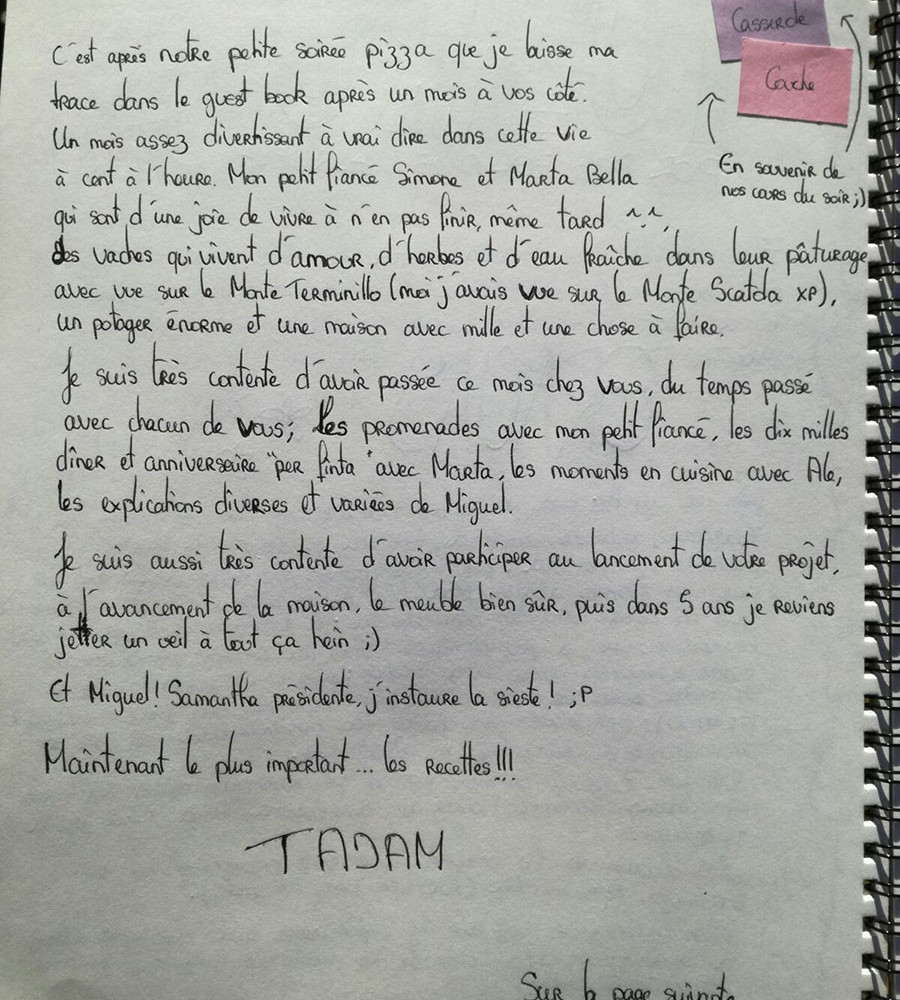 Casserole
Cache
En souvenir de
nos cours du soir ;)
C'est après notre petite soirée pizza que je laisse ma
trace dans le guest book après un mois à vos côté.
Un mois assez divertissant à vrai dire dans cette vie
à cent à l'heure. Mon petit fiancé Simone et Marta Bella
qui sont d'une joie de vivre à n'en pas finir, même tard ^^,
des vaches qui vivent d'amour, d'herbes et d'eau fraîche dans leur pâturage
avec vue sur le Monte Terminillo (moi j'avais vue sur le Monte Scatola xP),
un potager énorme et une maison avec mille et une chose à faire.
Je suis très contente d'avoir passée ce mois chez vous, du temps passé
avec chacun de vous; les promenades avec mon petit fiancé, les dix milles
dîner et anniversaire "per finta" avec Marta, les moments en cuisine avec Ale,
les explications diverses et variées de Miguel.
Je suis aussi très contente d'avoir participer au lancement de votre projet,
à l'avancement de la maison, le meuble bien sûr, puis dans 5 ans je reviens
jetter un oeil à tout ça hein ;)
Et Miguel! Samantha présidente, j'instaure la sieste! ;P
Maintenant le plus important... les Recettes!!!
TADAM
Sur la page suivante